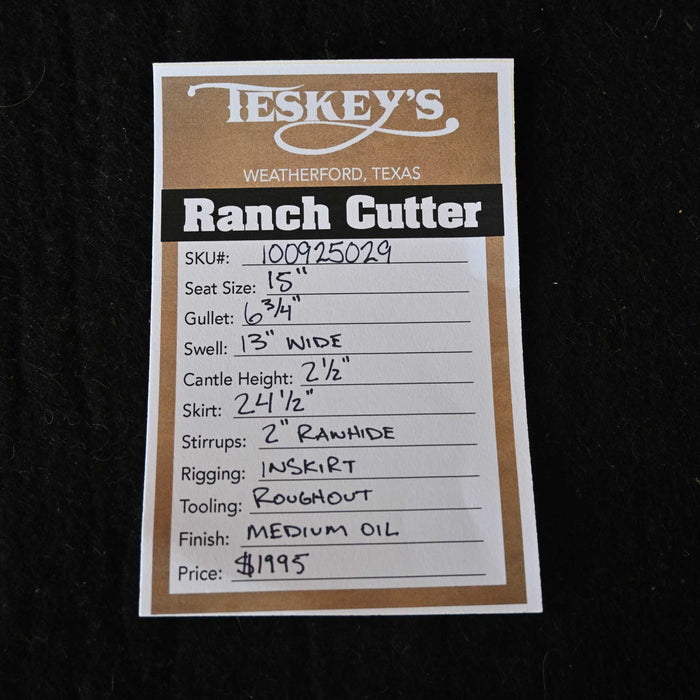 TESKEY'S
WEATHERFORD, TEXAS
Ranch Cutter
SKU#: 100925029
Seat Size: 15"
Gullet: 6 3/4"
Swell: 13" WIDE
Cantle Height: 2 1/2"
Skirt: 24 1/2"
Stirrups: 2" RAWHIDE
Rigging: INSKIRT
Tooling: ROUGHOUT
Finish: MEDIUM OIL
Price: $1995